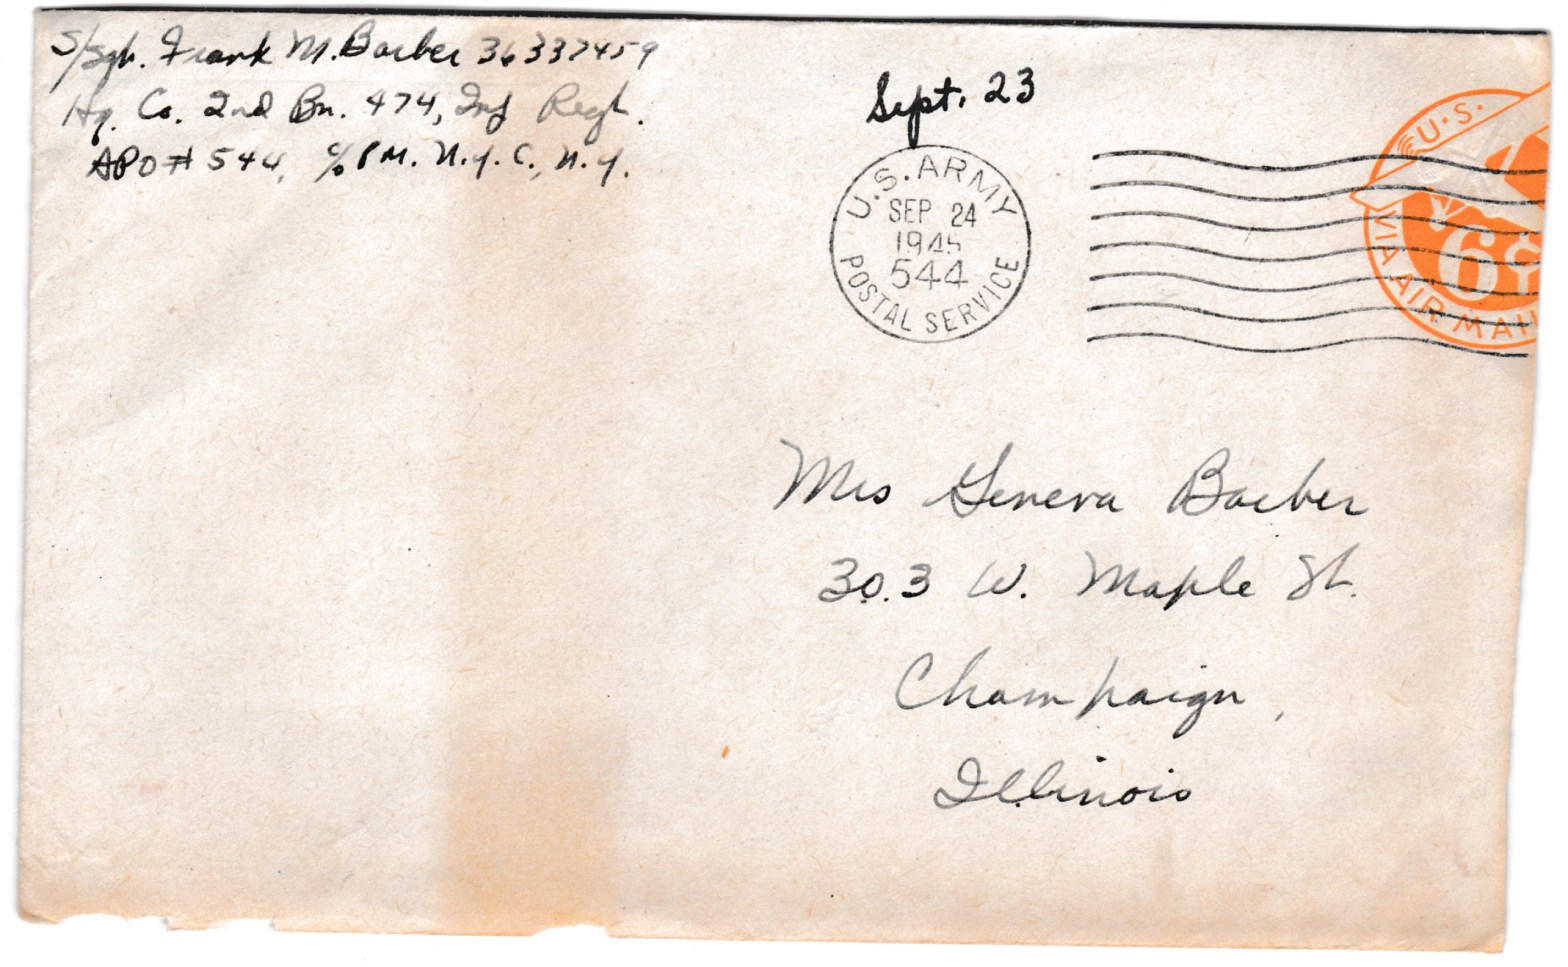 S/Sgt. Frank M. Barber 36337459
Hq. Co. 2nd Bn. 474, Inf Regt.
APO # 544, c/o P.M. N.Y.C., N.Y.
Sept. 23
U.S. ARMY
SEP 24
1945
544
POSTAL SERVICE
U.S.
6¢
VIA AIR MAIL
Mrs Geneva Barber
303 W. Maple St.
Champaign,
Illinois